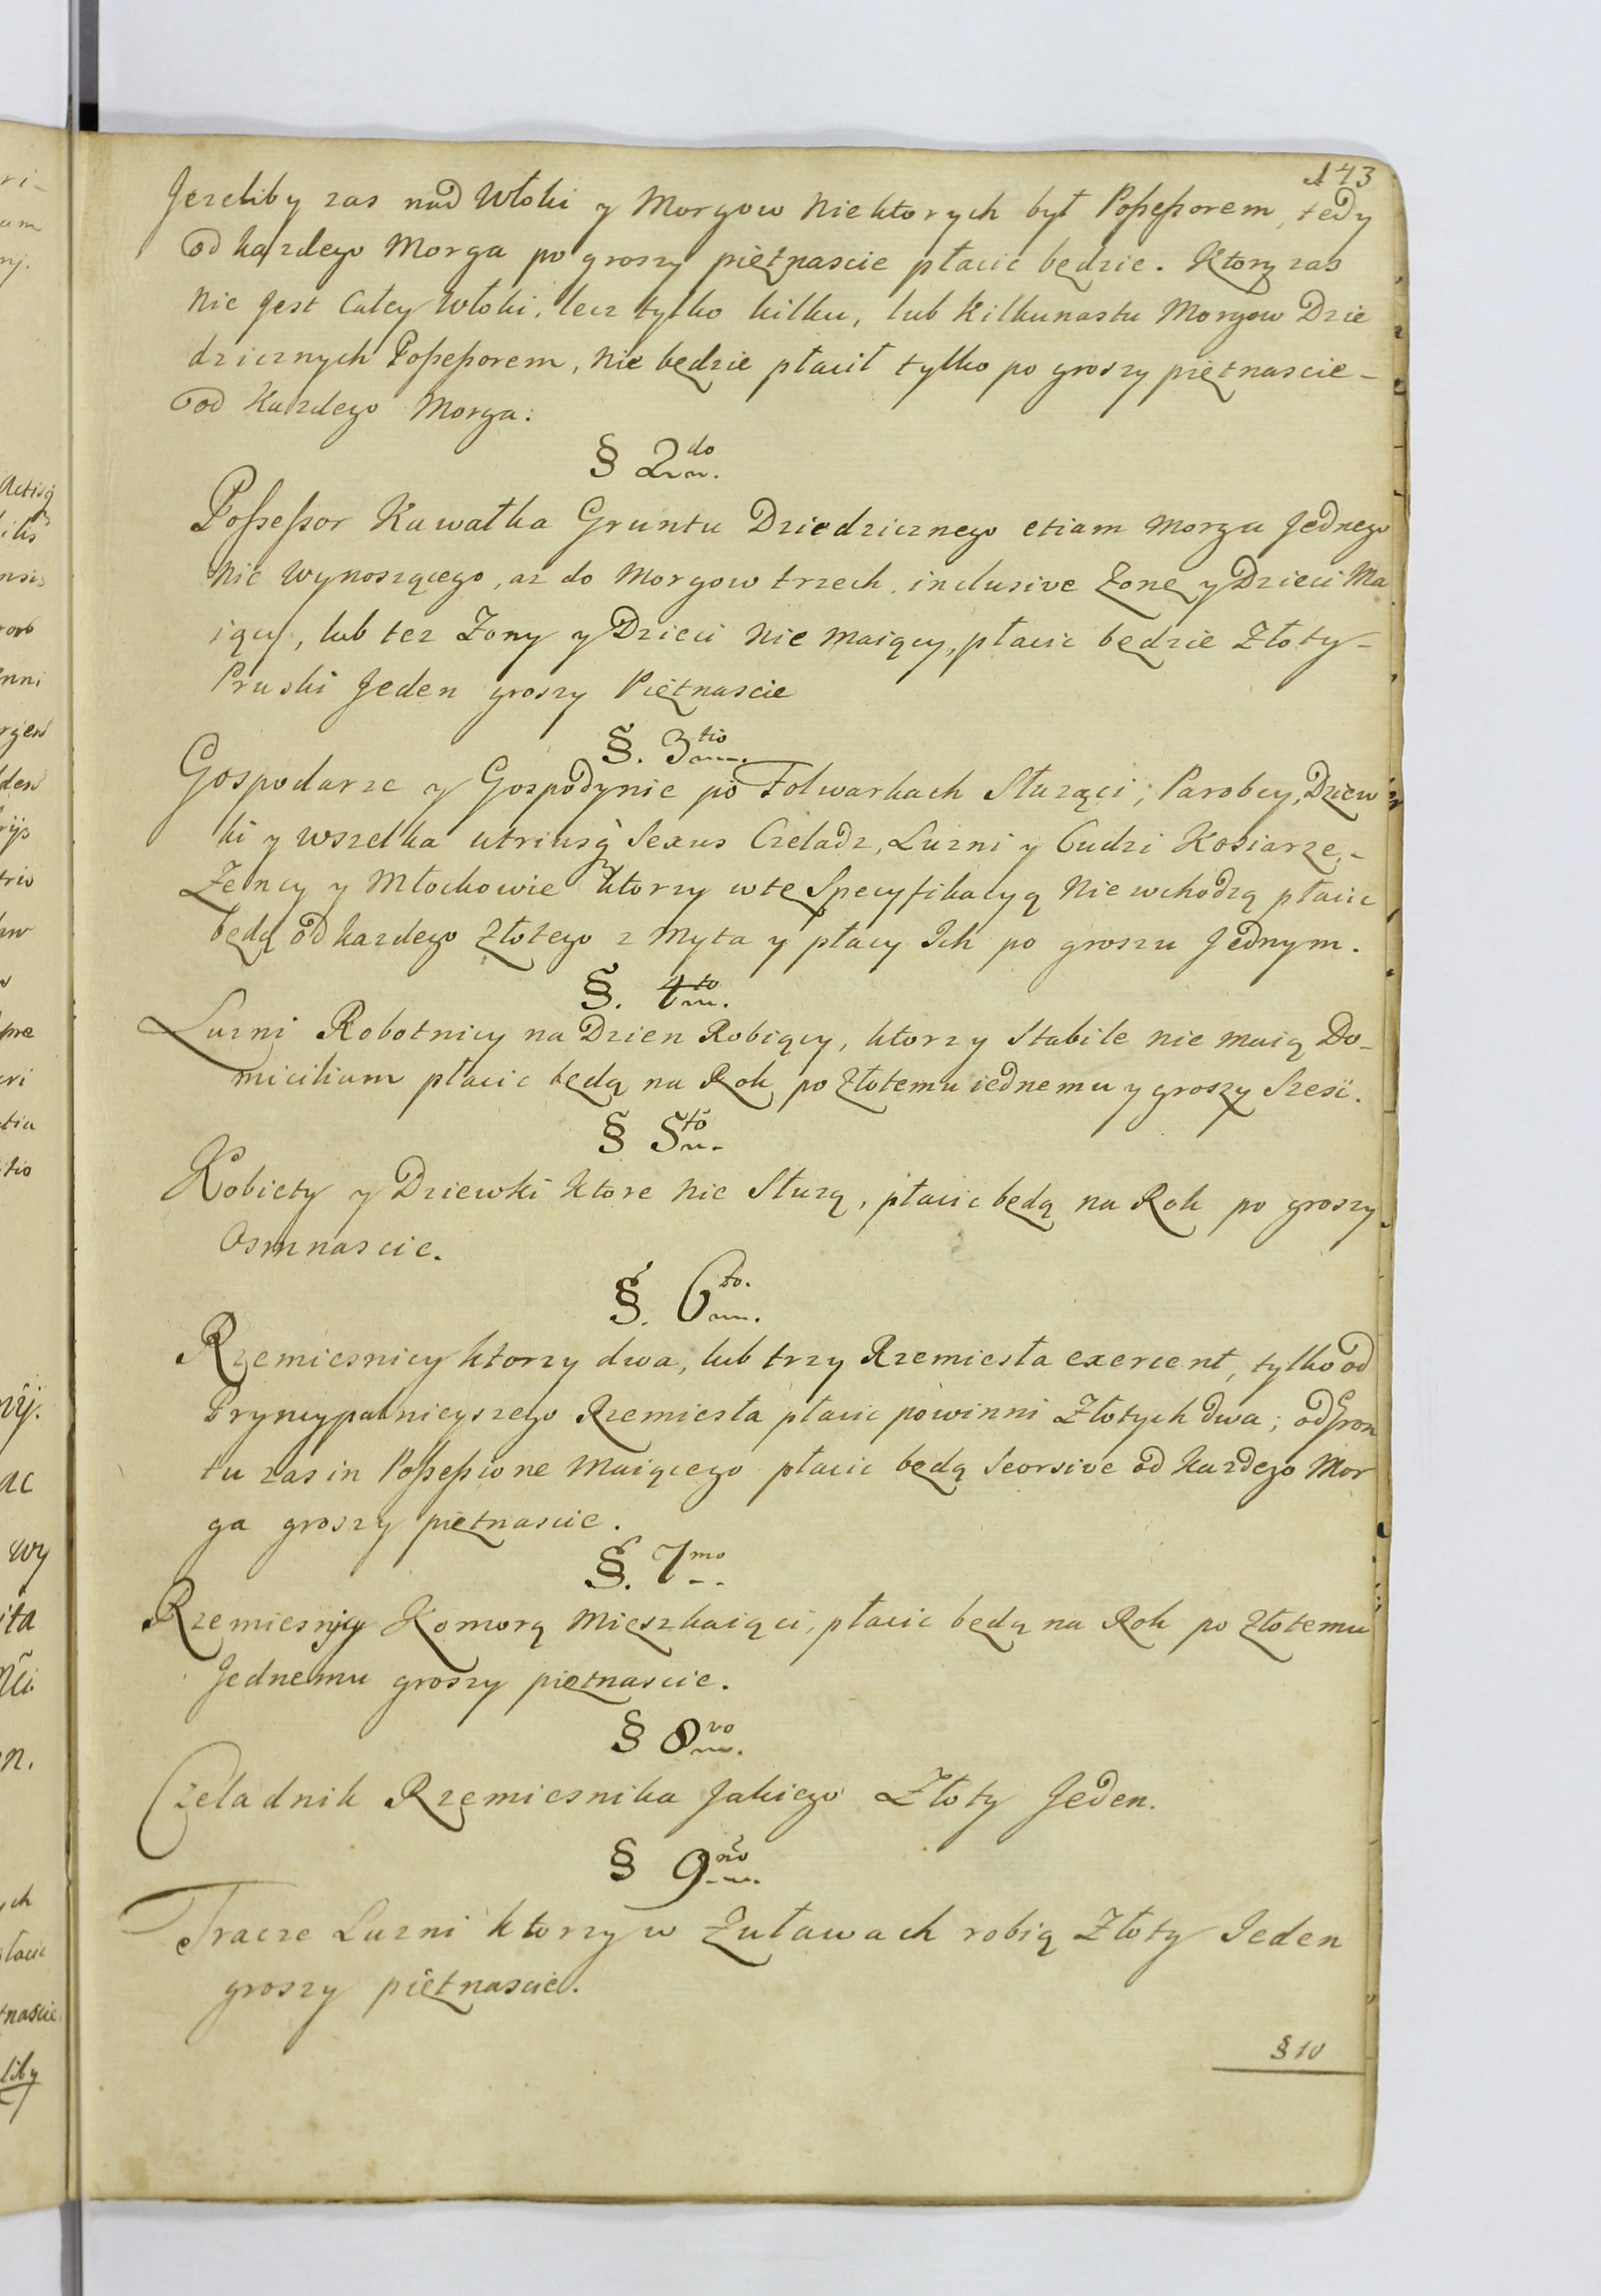 143
Jezeliby zas nad Włoki y Morgow Niektorych był Poſseſsorem, tedy
od kazdego Morga po groszy piętnascie płacic będzie. Ktory zas
Nie Jest Całey Włoki, lecz tylko kilku, lub Kilkunastu Morgow Dzie
dzicznych Poſseſsorem, Nie będzie płacił tylko po groszy piętnascie –
od Kazdego Morga.
§ 2do
Poſseſsor Kawałka Gruntu Dziedzicznego etiam Morga Jednego
Nie Wynoszącego, az do Morgow trzech inclusive Zonę y Dzieci Ma
iący, lub tez Zony y Dzieci Nie maiący, płacic będzie Złoty –
Pruski Jeden groszy Piętnascie
§. 3tio
Gospodarze y Gospodynie po Folwarkach Słuząci, Parobcy, Dziew
ki y Wszelka utriusq Sexus Czeladz, Luzni y Cudzi Kosiarze, –
Zency y Młockowie ktorzy w tę Specyfikacyą Nie wchodzą płacic
będą od kazdego Złotego z Myta y płacy Ich po groszu Jednym.
§. 4to
Luzni Robotnicy na Dzien Robiący, ktorzy Stabile nie maią Do-
micilium płacic będą na Rok po Złotemu iednemu y groszy Szesc.
§ 5to
Kobiety y Dziewki Ktore Nie Słuzą, płacic będą na Rok po groszy
Osmnascie.
§. 6to.
Rzemiesnicy ktorzy dwa, lub trzy Rzemiesła exercent, tylko od
Pryncypalnieyszego Rzemiesła płacic powinni Złotych dwa; od Gron
tu zas in Poſseſsione Maiącego płacic będą Seorsive od kazdego Mor
ga groszy piętnascie.
§. 7mo
Rzemiesnicy Komorą Mieszkaiąci, płacic będą na Rok po Złotemu
Jednemu groszy piętnascie.
§ 8vo
Czeladnik Rzemiesnika Jakiego Złoty Jeden.
§ 9no
Tracze Luzni ktorzy w Zuławach robią Złoty Jeden
groszy piętnascie.
§ 10